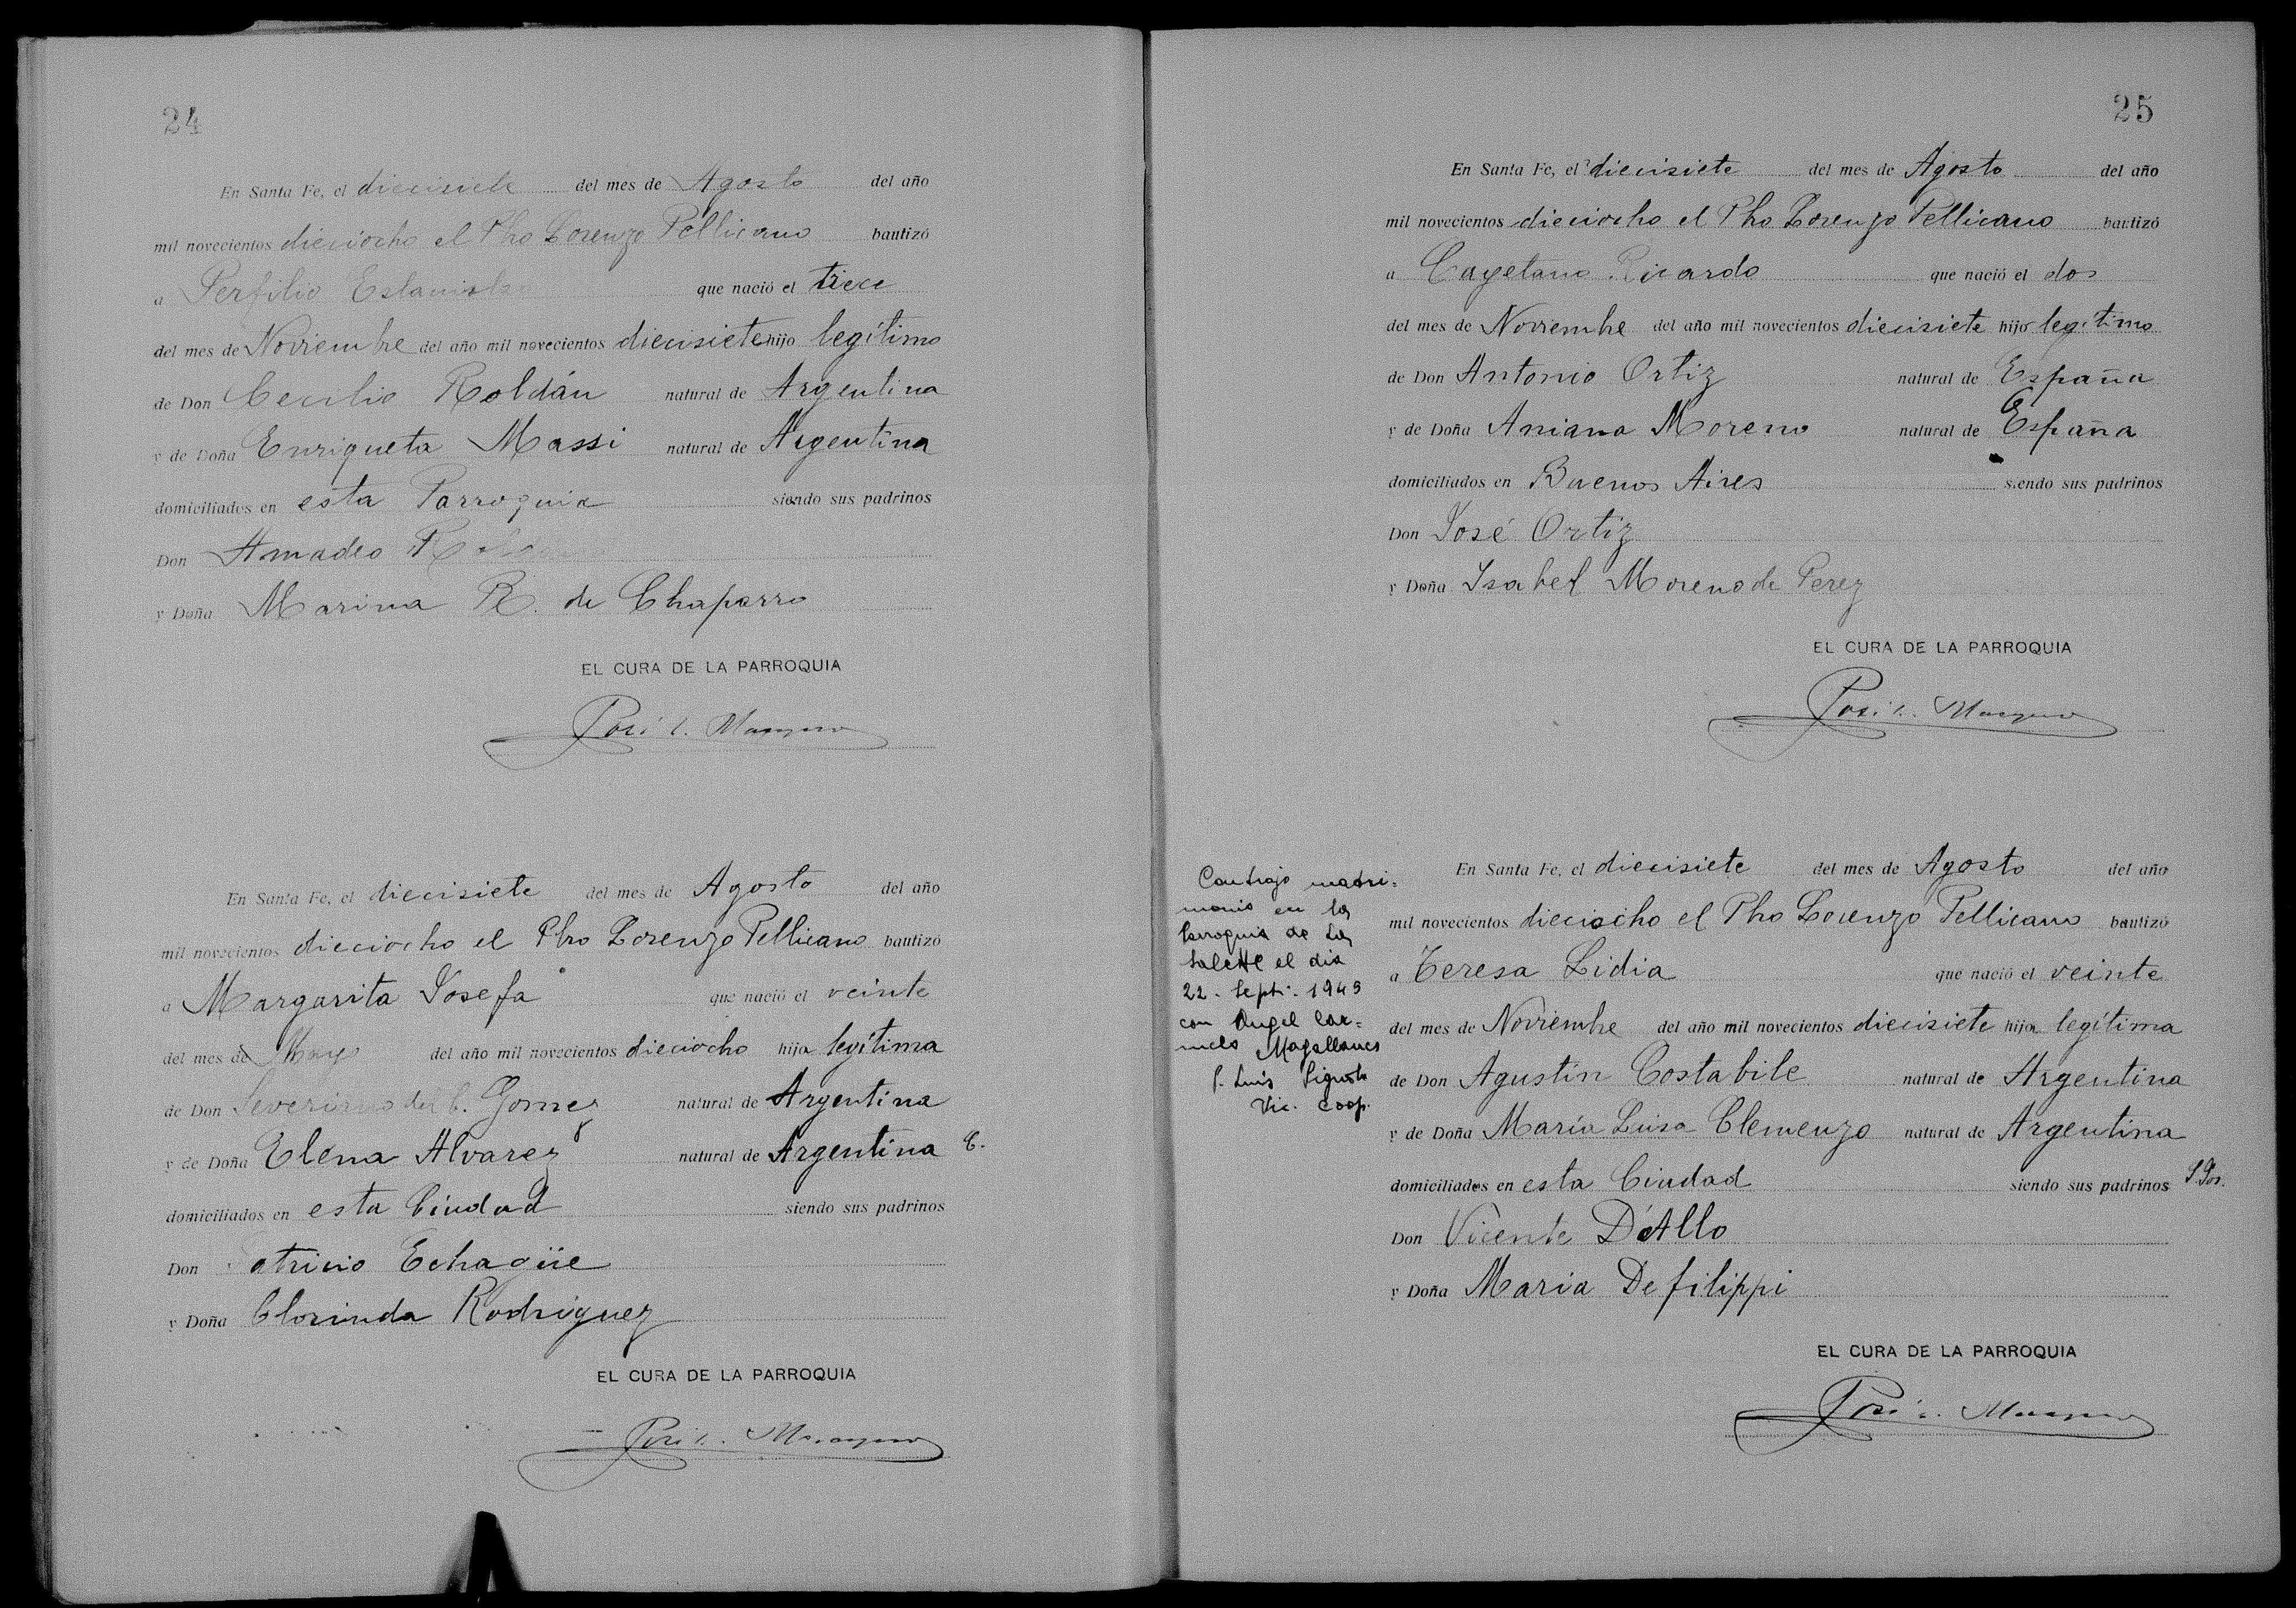 24
En Santa Fe, el diecisiete del mes de Agosto del año
mil novecientos dieciocho el Pbro Lorenzo Pellicano bautizó
a Perfilio Estanislao que nació el trece
del mes de Noviembre del año mil novecientos diecisiete hijo legítimo
de Don Cecilio Roldán natural de Argentina
y de Doña Enriqueta Massi natural de Argentina
domiciliados en esta Parroquia siendo sus padrinos
Don Amadeo
y Doña Marina R. de Chaparro
EL CURA DE LA PARROQUIA
José
En Santa Fe, el diecisiete del mes de Agosto del año
mil novecientos dieciocho el Pbro Lorenzo Pellicano bautizó
a Margarita Josefa que nació el veinte
del mes de Mayo del año mil novecientos dieciocho hija legítima
de Don Severino del C. Gomez natural de Argentina
y de Doña Elena Alvarez natural de Argentina C.
domiciliados en esta Ciudad siendo sus padrinos
Don atricio Echagüe
y Doña Clorinda Rodriguez
EL CURA DE LA PARROQUIA
José
25
En Santa Fe, el diecisiete del mes de Agosto del año
mil novecientos dieciocho el Pbro Lorenzo Pellicano bautizó
a Cayetano Ricardo que nació el dos
del mes de Noviembre del año mil novecientos diecisiete hijo legítimo
de Don Antonio Ortiz natural de España
y de Doña Aniana Moreno natural de España
domiciliados en Buenos Aires siendo sus padrinos
Don José Ortiz
y Doña Isabel Moreno de Perez
EL CURA DE LA PARROQUIA
José
Contrajo matri=
monio en la
Parroquia de La
Salette el dia
22 - Sept. - 1943
con Angel Car=
melo Magallanes
P. Luis
Vic. Coop.
En Santa Fe, el diecisiete del mes de Agosto del año
mil novecientos dieciocho el Pbro Lorenzo Pellicano bautizó
a Teresa Lidia que nació el veinte
del mes de Noviembre del año mil novecientos diecisiete hija legítima
de Don Agustín Costabile natural de Argentina
y de Doña María Luisa Clemenzo natural de Argentina
domiciliados en esta Ciudad siendo sus padrinos
Don Vicente D'Allo
y Doña Maria Defilippi
EL CURA DE LA PARROQUIA
José